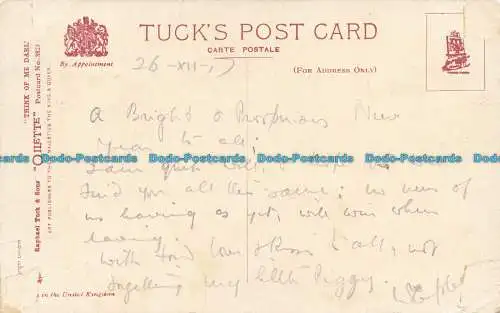 TUCK'S POST CARD
CARTE POSTALE
By Appointment
(FOR ADDRESS ONLY)
26-XII-17
A Bright & Prosperous New
Year to all;
I am quite well,
find you all the same: no news of
us having as yet, will wire when
leaving.
With fond love & Kisses to all, not
forgetting my little Peggy.
"THINK OF ME DARL
"OILETTE" Postcard No.
Raphael Tuck & Sons'
ART PUBLISHERS TO THEIR MAJESTIES THE KING & QUEEN
in the United Kingdom
Dodo-Postcards Dodo-Postcards Dodo-Postcards Dodo-Postcards